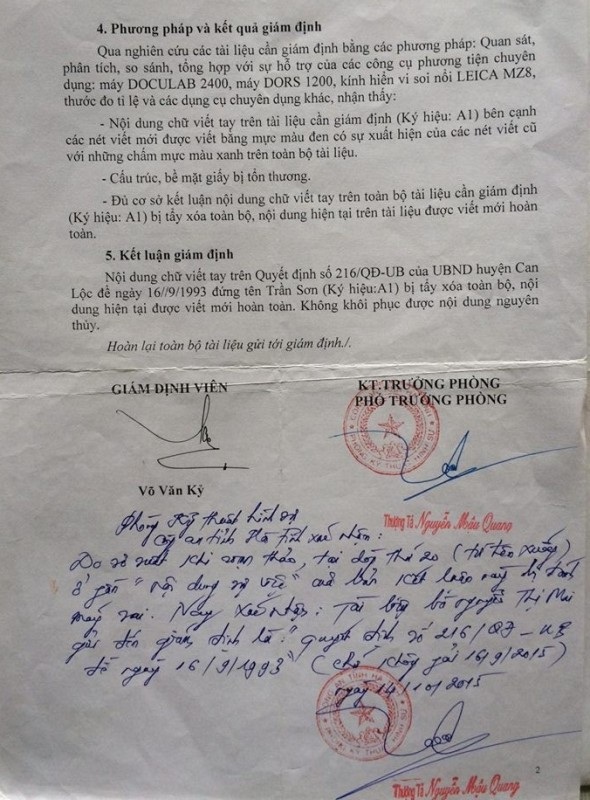 4. Phương pháp và kết quả giám định
Qua nghiên cứu các tài liệu cần giám định bằng các phương pháp: Quan sát,
phân tích, so sánh, tổng hợp với sự hỗ trợ của các công cụ phương tiện chuyên
dụng: máy DOCULAB 2400, máy DORS 1200, kính hiển vi soi nổi LEICA MZ8,
thước đo tỉ lệ và các dụng cụ chuyên dụng khác, nhận thấy:
- Nội dung chữ viết tay trên tài liệu cần giám định (Ký hiệu: A1) bên cạnh
các nét viết mới được viết bằng mực màu đen có sự xuất hiện của các nét viết cũ
với những chấm mực màu xanh trên toàn bộ tài liệu.
- Cấu trúc, bề mặt giấy bị tổn thương.
- Đủ cơ sở kết luận nội dung chữ viết tay trên toàn bộ tài liệu cần giám định
(Ký hiệu: A1) bị tẩy xóa toàn bộ, nội dung hiện tại trên tài liệu được viết mới hoàn
toàn.
5. Kết luận giám định
Nội dung chữ viết tay trên Quyết định số 216/QĐ-UB của UBND huyện Can
Lộc đề ngày 16//9/1993 đứng tên Trần Sơn (Ký hiệu:A1) bị tẩy xóa toàn bộ, nội
dung hiện tại được viết mới hoàn toàn. Không khôi phục được nội dung nguyên
thủy.
Hoàn lại toàn bộ tài liệu gửi tới giám định./.
GIÁM ĐỊNH VIÊN
KT.TRƯỞNG PHÒNG
PHÓ TRƯỞNG PHÒNG
Võ Văn Kỷ
Thượng Tá Nguyễn Mậu Quang
Phòng Kỹ thuật hình sự
Công an tỉnh Hà Tĩnh xác nhận:
Do sơ suất khi soạn thảo, tại dòng thứ 20 (từ trên xuống)
ở phần "nội dung vụ việc" của bản kết luận này bị đánh
máy sai. Nay xác nhận: Tài liệu bà Nguyễn Thị Mai
gửi đến giám định là: "Quyết định số 216/QĐ-UB
đề ngày 16/9/1993" (chứ không phải 16/9/2015)
ngày 14/10/2015
Thượng Tá Nguyễn Mậu Quang
2